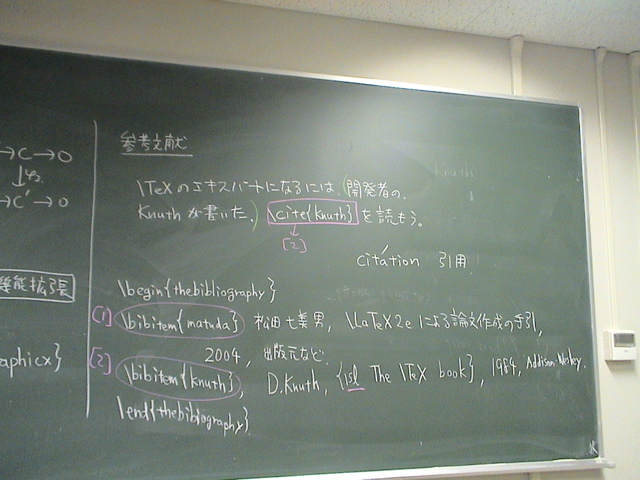 →C→0
↓φ
→C'→0
機能拡張
aphicx}
参考文献
\TeX のエキスパートになるには、(開発者の、
Knuth が書いた、) \cite{knuth} を読もう。
[2]
citation 引用
\begin{thebibliography}
[1] \bibitem{matuda} 松田七美男, \LaTeX2e による論文作成の手引,
2004, 出版元など
[2] \bibitem{knuth}, D.Knuth, {\sl The \TeX book}, 1984, Addison-Wesley.
\end{thebibliography}